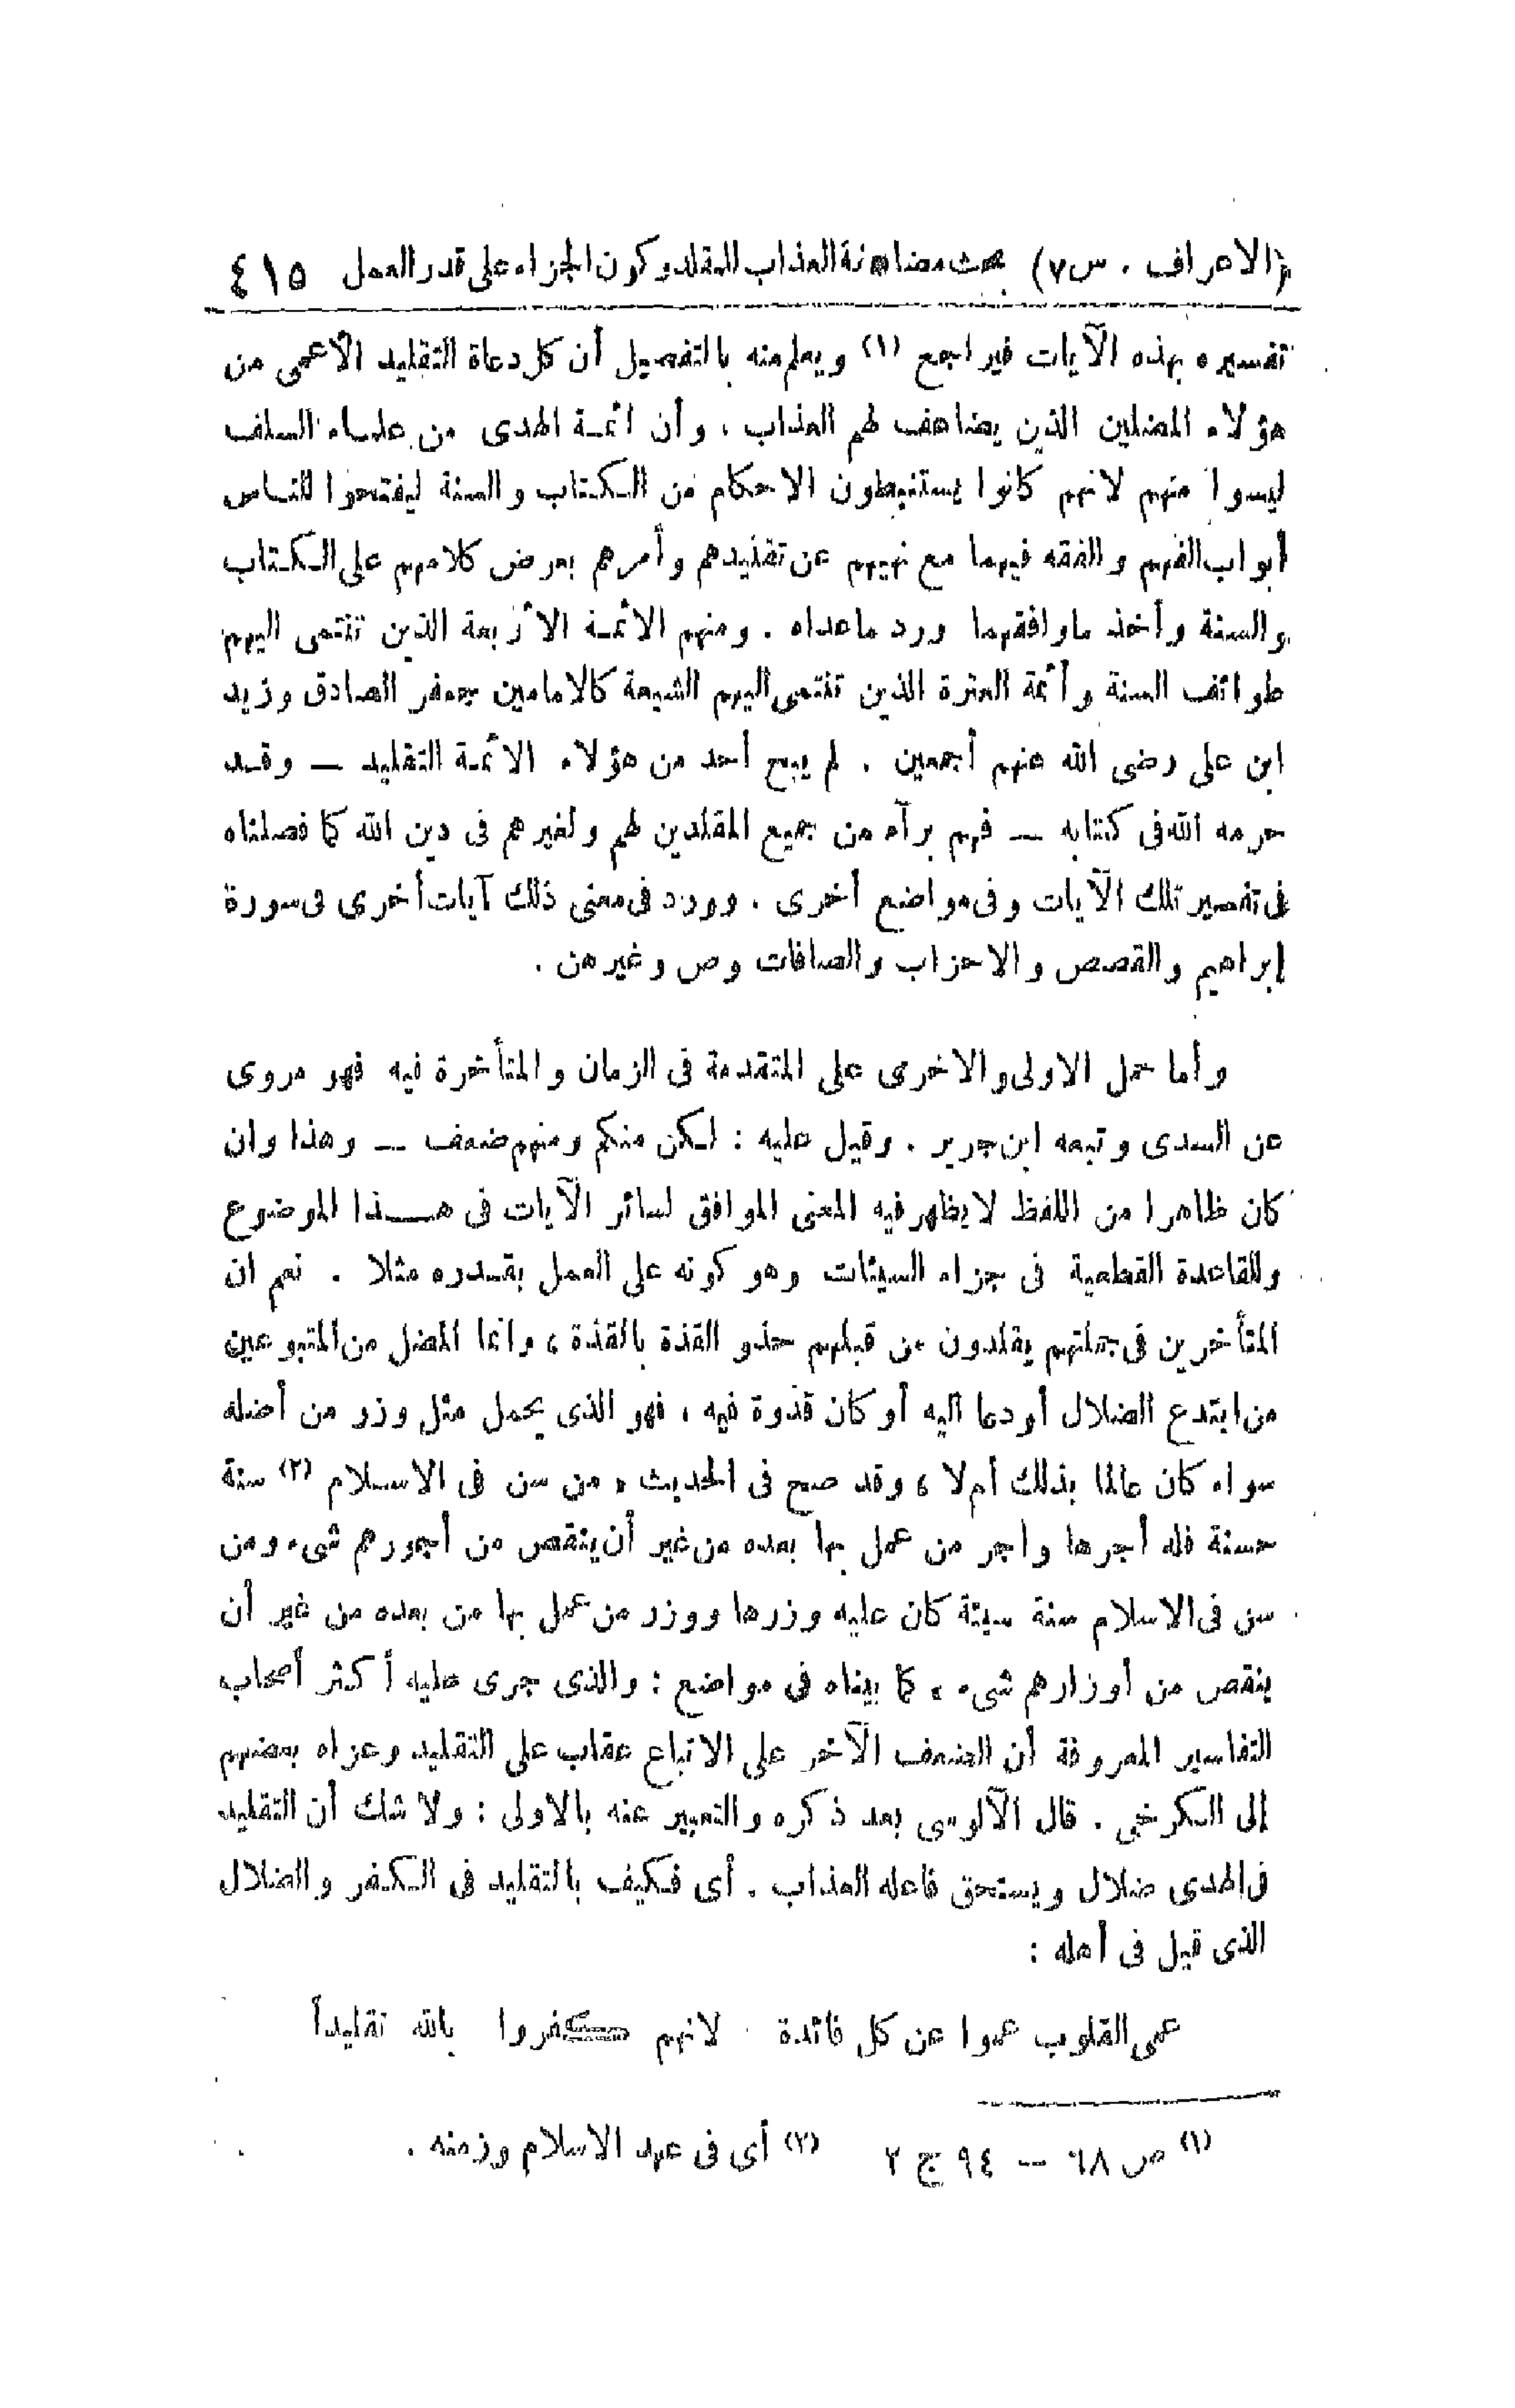 (الاعراف . س٧) بحث مضاعفة العذاب للمقلد وكون الجزاء على قدر العمل ٤١٥
تفسيره بهذه الآيات فيراجع (١) ويعلم منه بالتفصيل أن كل دعاة التقليد الأعمى من
هؤلاء المضلين الذين يضاعف لهم العذاب ، وأن ائمـة الهدى من علماء السلف
ليسوا منهم لانهم كانوا يستنبطون الاحكام من الكتاب والسنة ليفتحوا للناس
أبواب الفهم والفقه فيهما مع نهيهم عن تقليدهم وأمرهم بعرض كلامهم على الكتاب
والسنة وأخذ ماوافقهما ورد ماعداه . ومنهم الائمـة الأربعة الذين تنتمى اليهم
طوائف السنة وأئمة العترة الذين تنتمى اليهم الشيعة كالامامين جعفر الصادق وزيد
ابن على رضى الله عنهم أجمعين . لم يبح أحد من هؤلاء الائمـة التقليد — وقـد
حرمه الله فى كتابه — فهم برآء من جميع المقلدين لهم ولغيرهم فى دين الله كما فصلناه
فى تفسير تلك الآيات وفى مواضع أخرى . وورد فى معنى ذلك آيات أخرى فى سورة
إبراهيم والقصص والاحزاب والصافات وص وغيرهن .
وأما حمل الاولى والاخرى على المتقدمة فى الزمان والمتأخرة فيه فهو مروى
عن السدى وتبعه ابن جرير . وقيل عليه : لكن منكم ومنهم ضعف — وهذا وان
كان ظاهرا من اللفظ لايظهر فيه المعنى الموافق لسائر الآيات فى هـــذا الموضوع
وللقاعدة القطعية فى جزاء السيئات وهو كونه على العمل بقـدره مثلا . نعم ان
المتأخرين فى جملتهم يقلدون من قبلهم حذو القذة بالقذة ، وانما المضل من المتبوعين
من ابتدع الضلال أو دعا اليه أو كان قدوة فيه ، فهو الذى يحمل مثل وزر من أضله
سواء كان عالما بذلك أم لا ، وقد صح فى الحديث « من سن فى الاسلام (٢) سنة
حسنة فله أجرها واجر من عمل بها بعده من غير أن ينقص من أجورهم شىء ومن
سن فى الاسلام سنة سيئة كان عليه وزرها ووزر من عمل بها من بعده من غير أن
ينقص من أوزارهم شىء » كما بيناه فى مواضع : والذى جرى عليه أكثر أصحاب
التفاسير المعروفة أن الضعف الآخر على الاتباع عقاب على التقليد وعزاه بعضهم
إلى الكرخى . قال الآلوسى بعد ذكره والتعبير عنه بالاولى : ولا شك أن التقليد
فى الهدى ضلال ويستحق فاعله العذاب . أى فكيف بالتقليد فى الكفر والضلال
الذى قيل فى أهله :
عمى القلوب عموا عن كل فائدة لانهم كفروا بالله تقليداً
(١) ص ٦٨ — ٩٤ ج ٢ (٢) أى فى عهد الاسلام وزمنه .